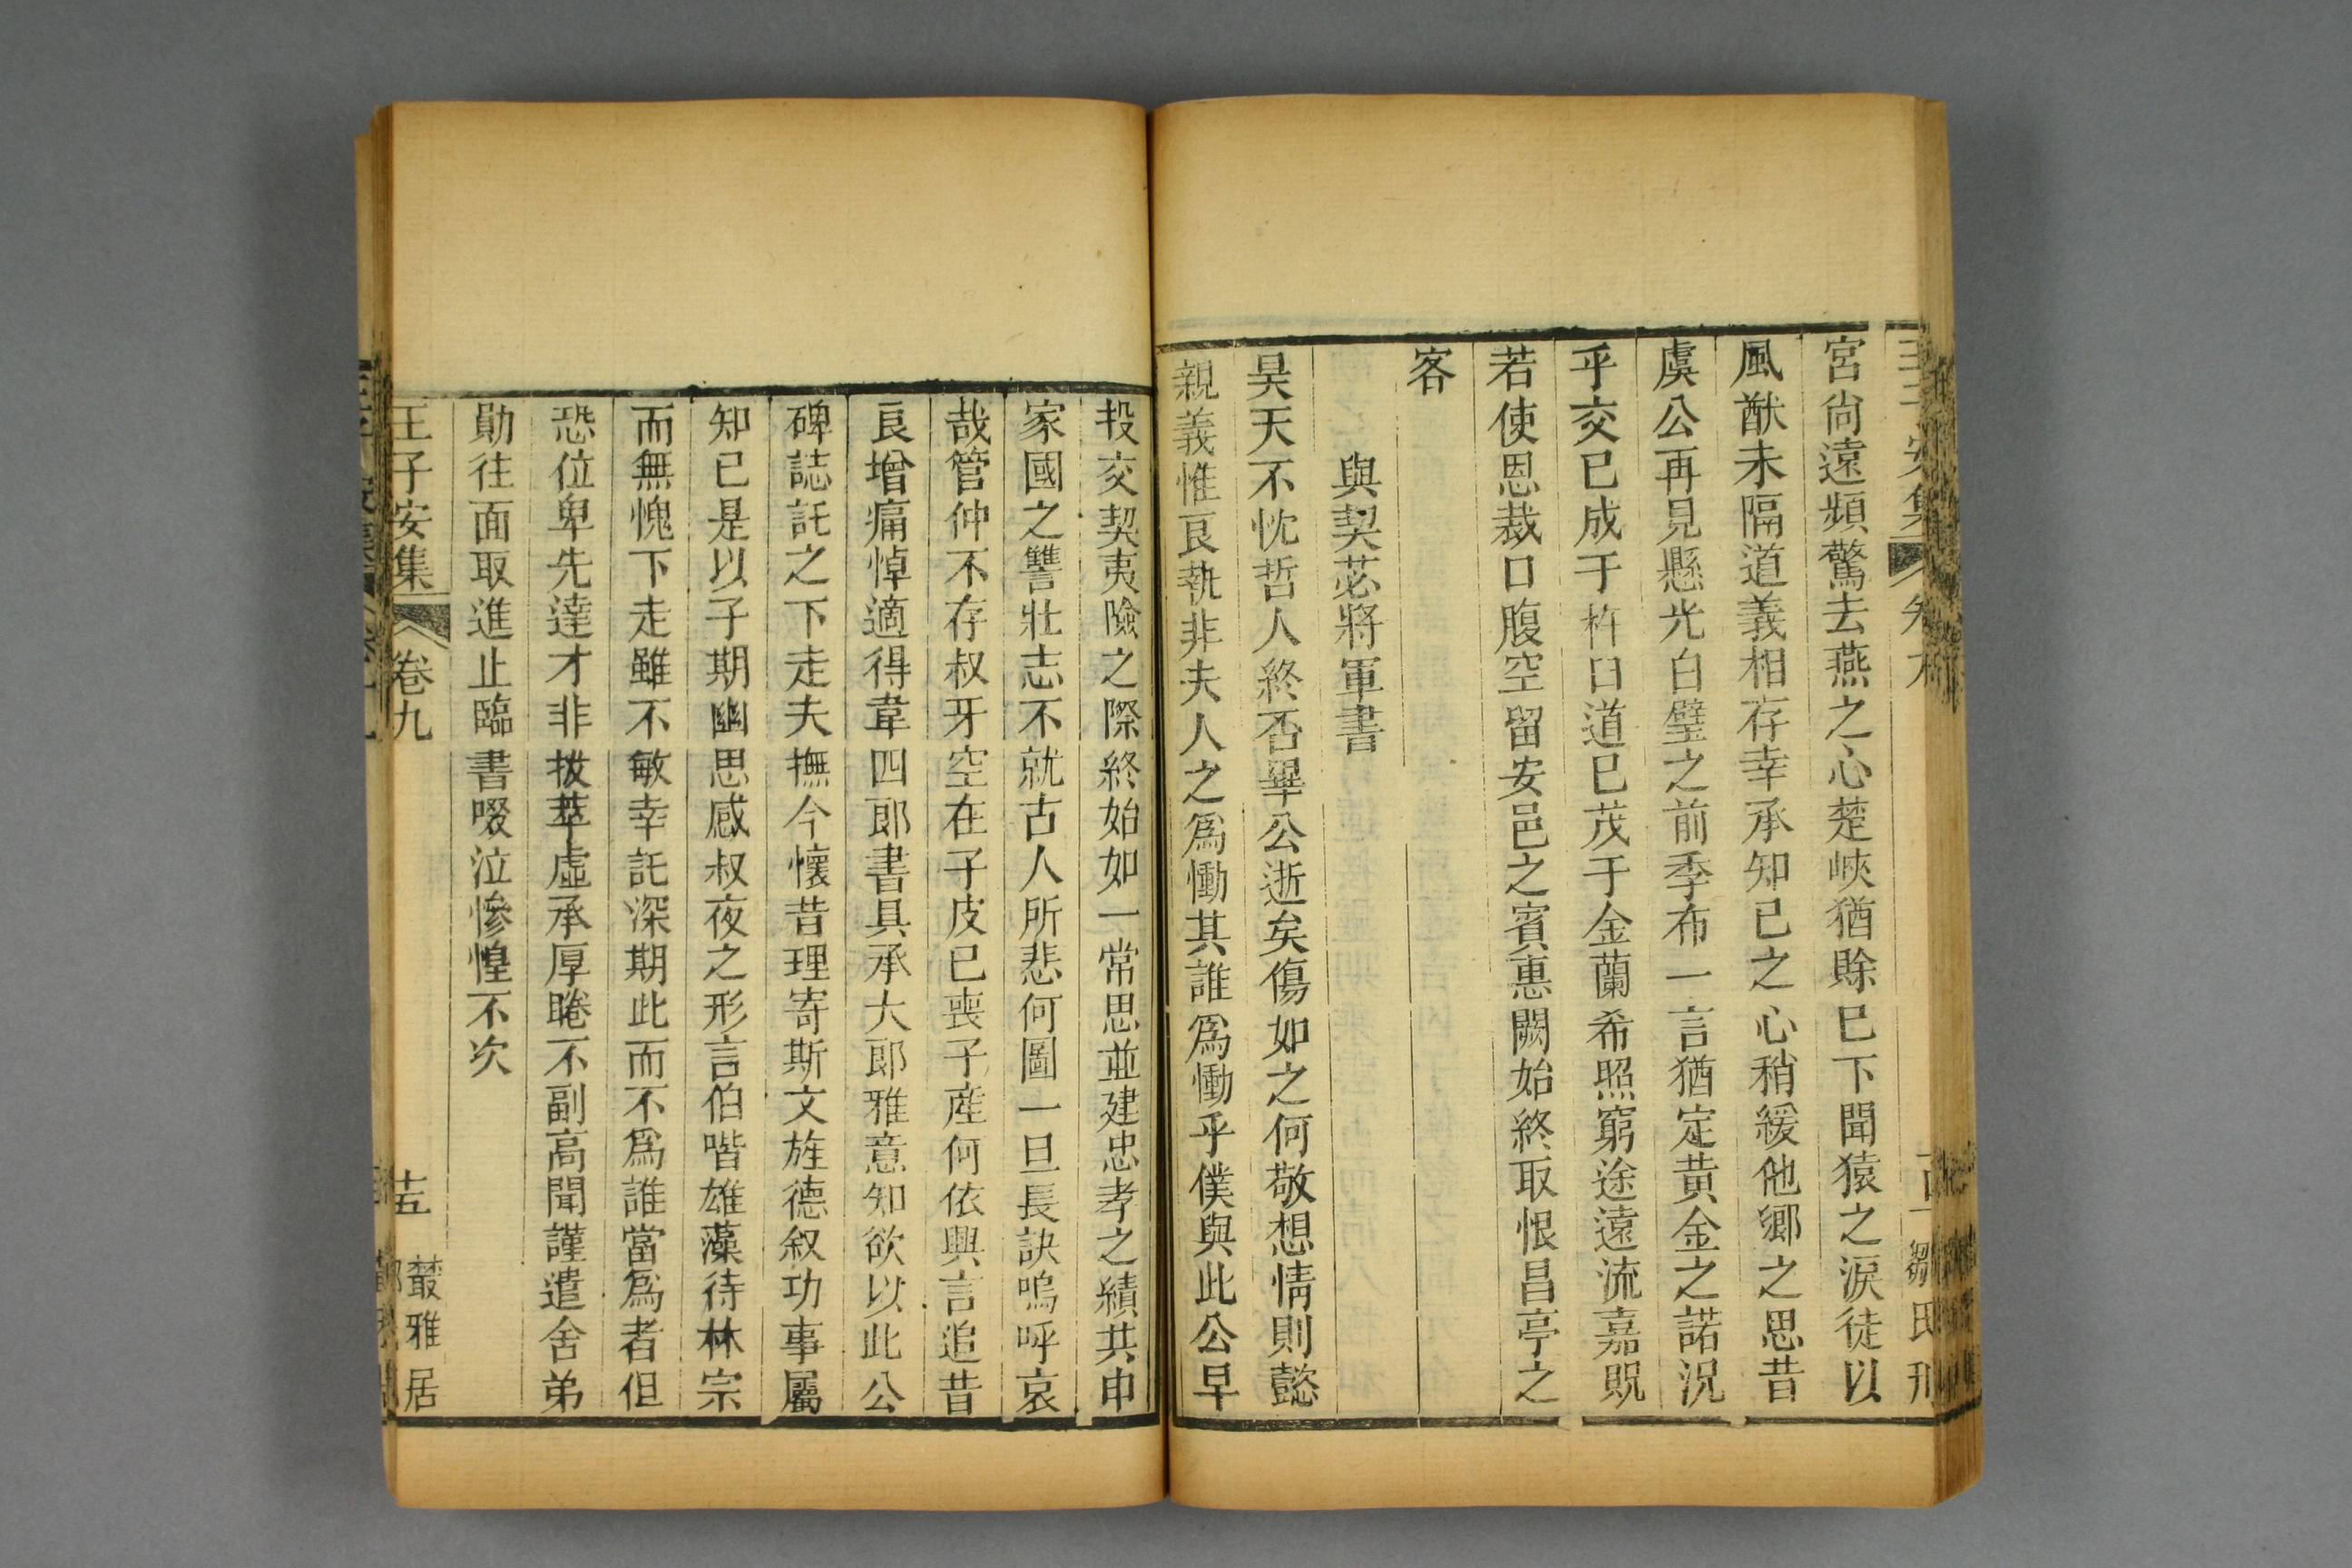 宮尚遠頻驚去燕之心楚峽猶賒已下聞猿之淚徒以
風猷未隔道義相存幸承知已之心稍緩他鄉之思昔
虞公再見懸光白璧之前季布一言猶定黃金之諾況
乎交已成于杵臼道已茂于金蘭希照窮途遠流嘉貺
若使恩裁口腹空留安邑之賓惠闕始終取恨昌亭之
客
與契苾將軍書
昊天不忱哲人終否畢公逝矣傷如之何敬想情則懿
親義惟良執非夫人之爲慟其誰爲慟乎僕與此公早
投交契夷險之際終始如一常思並建忠孝之績共申
家國之讐壯志不就古人所悲何圖一旦長訣嗚呼哀
哉管仲不存叔牙空在子皮已喪子產何依興言追昔
良增痛悼適得韋四郎書具承大郎雅意知欲以此公
碑誌託之下走夫撫今懷昔理寄斯文旌德叙功事屬
知已是以子期幽思感叔夜之形言伯喈雄藻待林宗
而無愧下走雖不敏幸託深期此而不爲誰當爲者但
恐位卑先達才非拔萃虛承厚睠不副高聞謹遣舍弟
勛往面取進止臨書啜泣慘惶不次
王子安集 卷九 十五 叢雅居